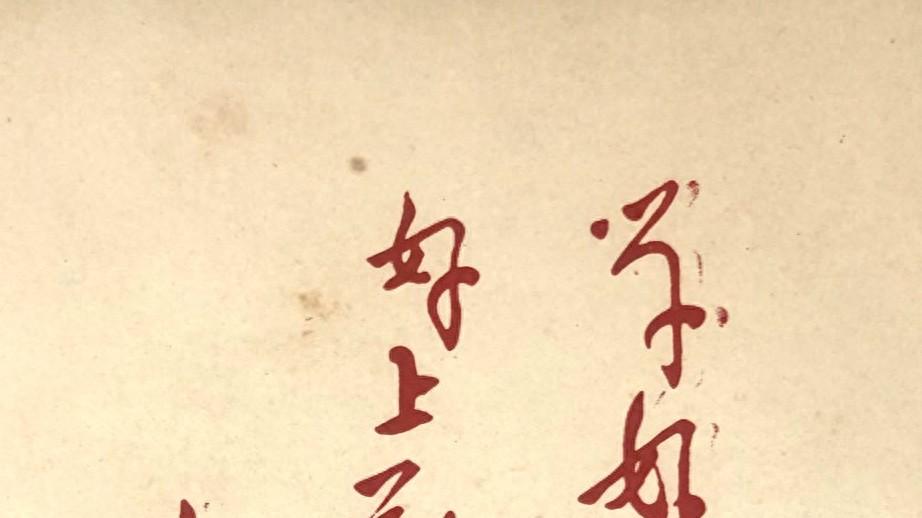 学好
好上